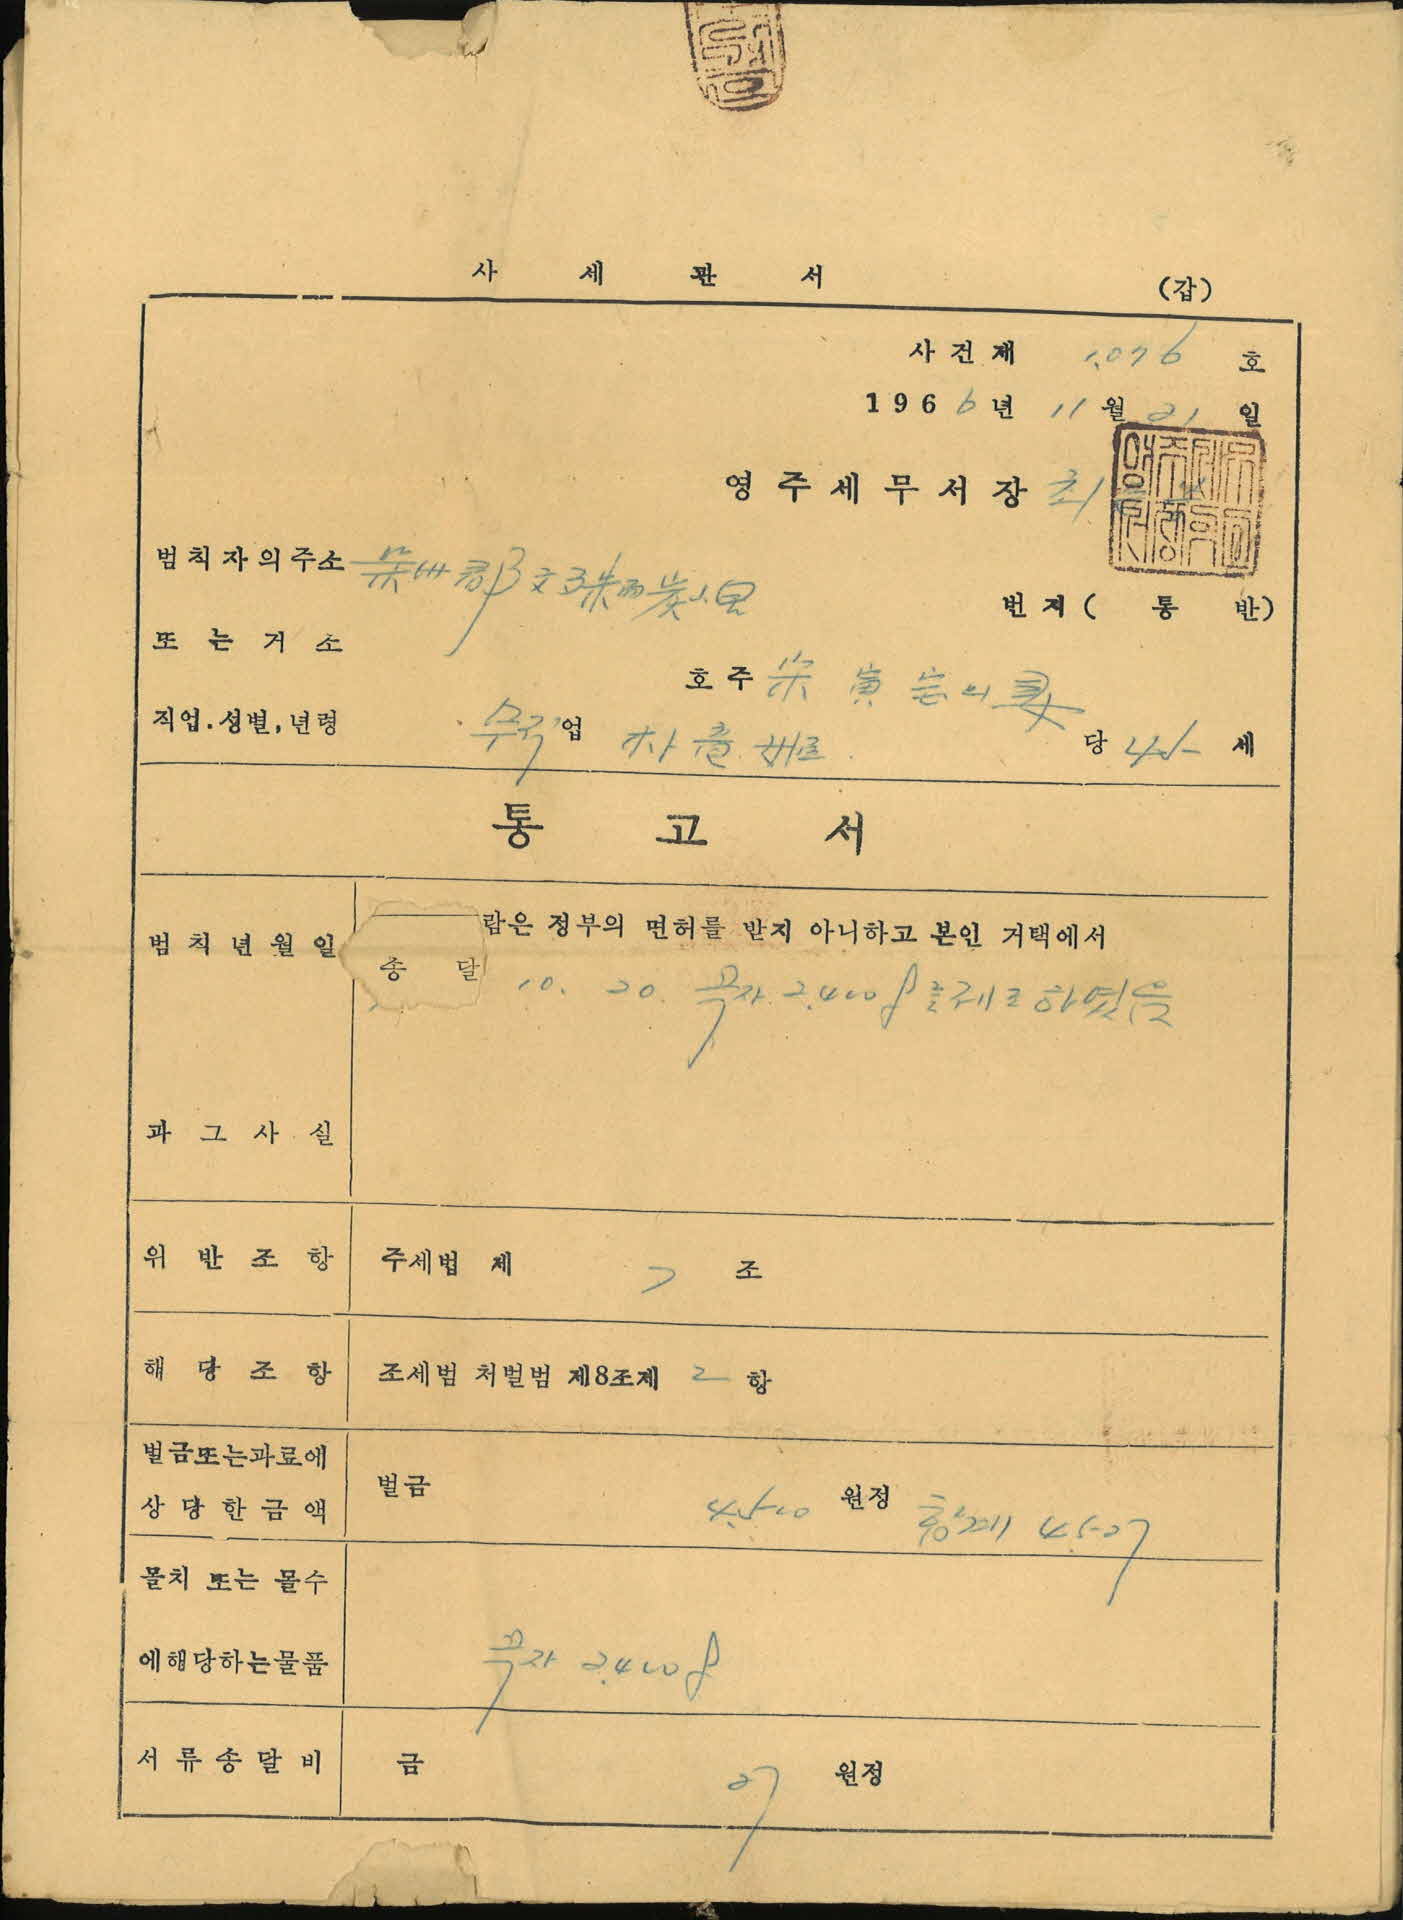 사 세 관 서 (갑)
사건제 1,076 호
1966년 11월 21일
영주세무서장 최
범칙자의주소 榮州郡 文殊面 炭山里
번지( 통 반)
또는거소
호주 宋寅 의 妻
직업.성별,년령 업 朴 당 45 세
통 고 서
범칙년월일
람은 정부의 면허를 받지 아니하고 본인 거택에서
송 달 10. 20. 곡자 2,400g를 제조하였음
과그사실
위반조항 주세법 제 7 조
해당조항 조세범 처벌범 제8조제 2 항
벌금또는과료에
상당한금액 벌금 4,500 원정 합계 4,527
몰치 또는 몰수
에해당하는물품 곡자 2,400g
서류송달비 금 27 원정